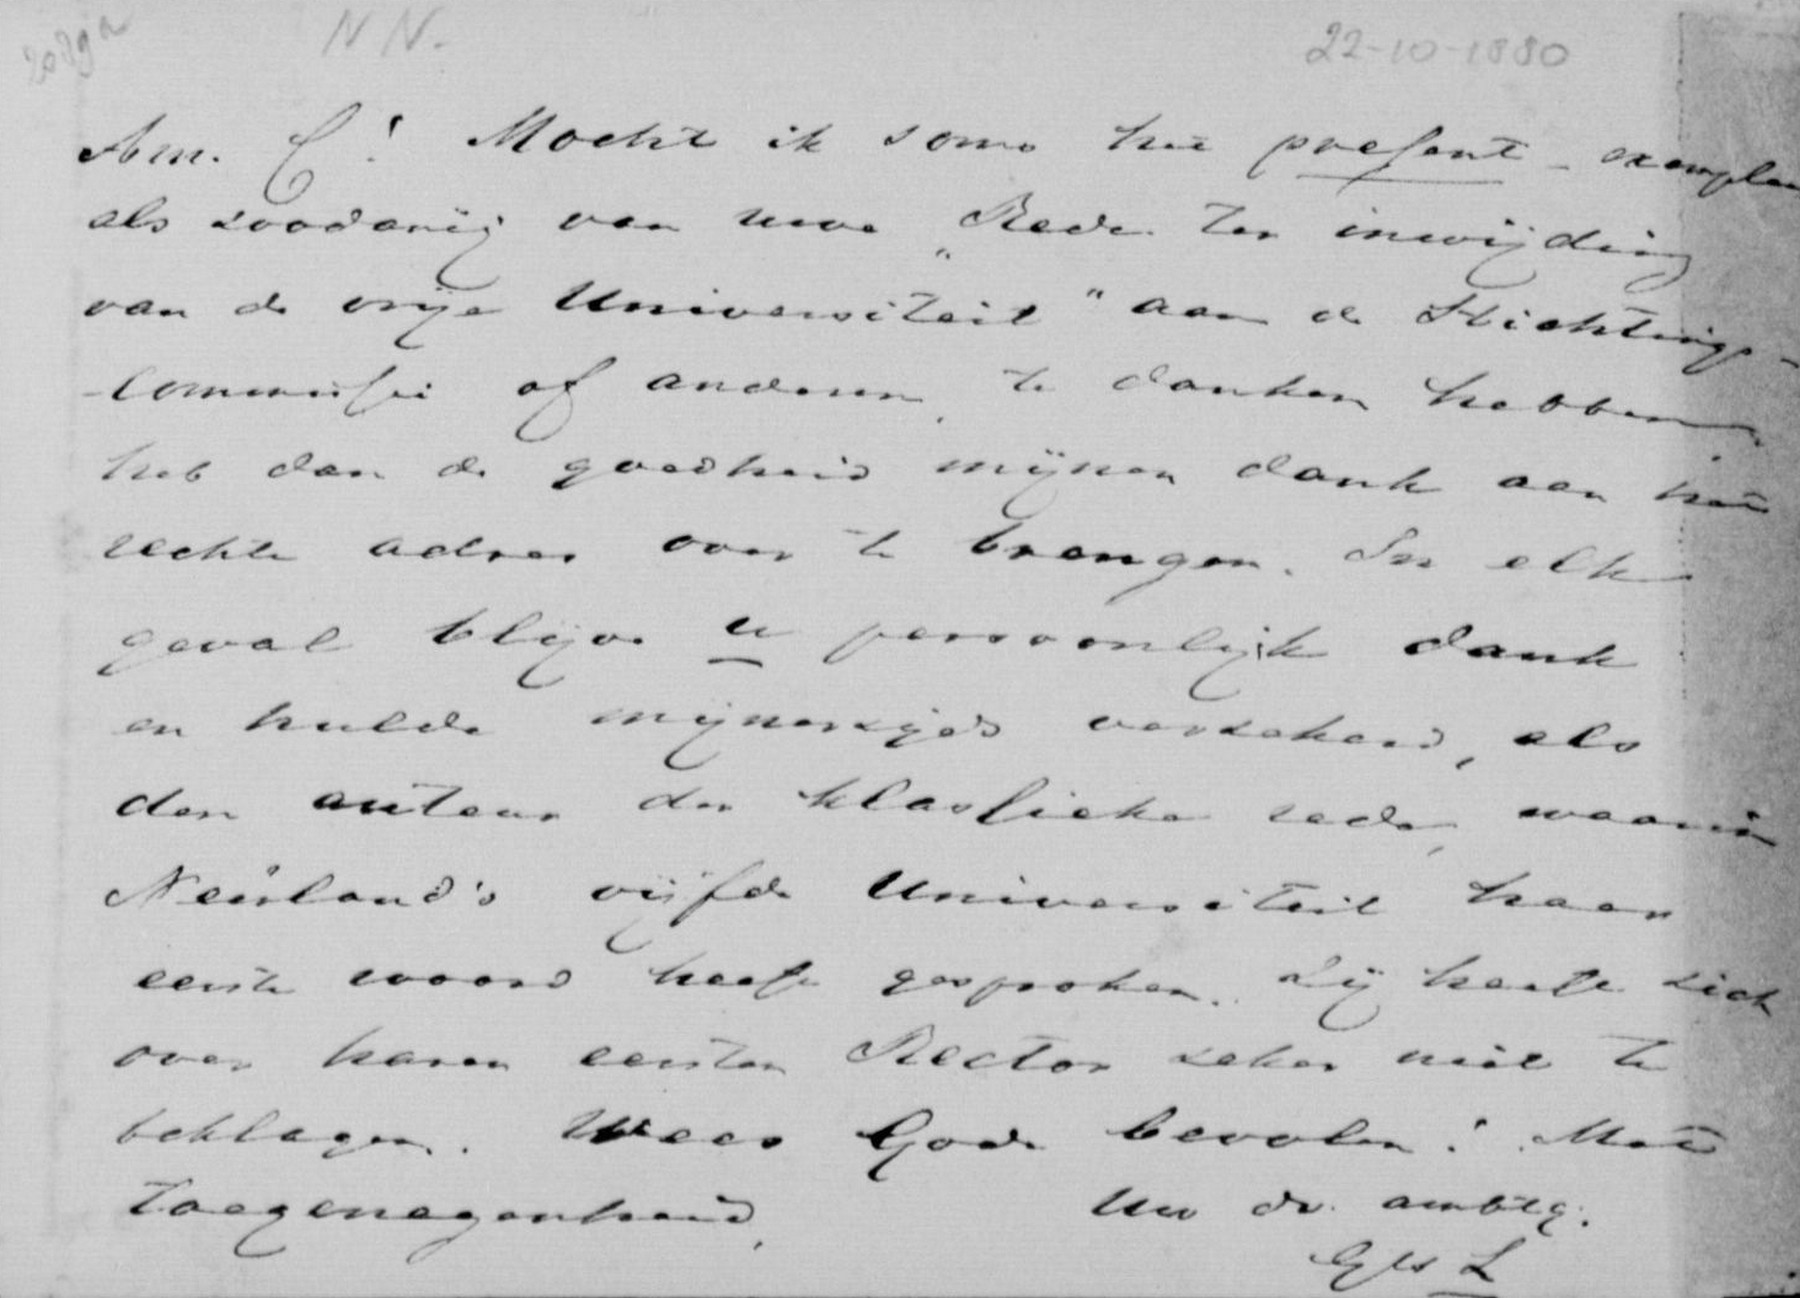 2089a N N. 22-10-1880
Am. C! Mocht ik soms het present-exemplaar
als zoodanig van uwe „Rede ter inwijding
van de vrije Universiteit" aan de Stichtings-
-commissie of anderen, te danken hebben,
heb dan de goedheid mijnen dank aan het
rechte adres over te brengen. In elk
geval blijve u persoonlijk dank
en hulde mijnerzijds verzekerd, als
den auteur der klassieke rede, waarin
Neêrland's vijfde Universiteit haar
eerste woord heeft gesproken. Zij heeft zich
over haren eersten Rector zeker niet te
beklagen. Wees Gode bevolen! Met
toegenegenheid,
Uw dv. ambtg.